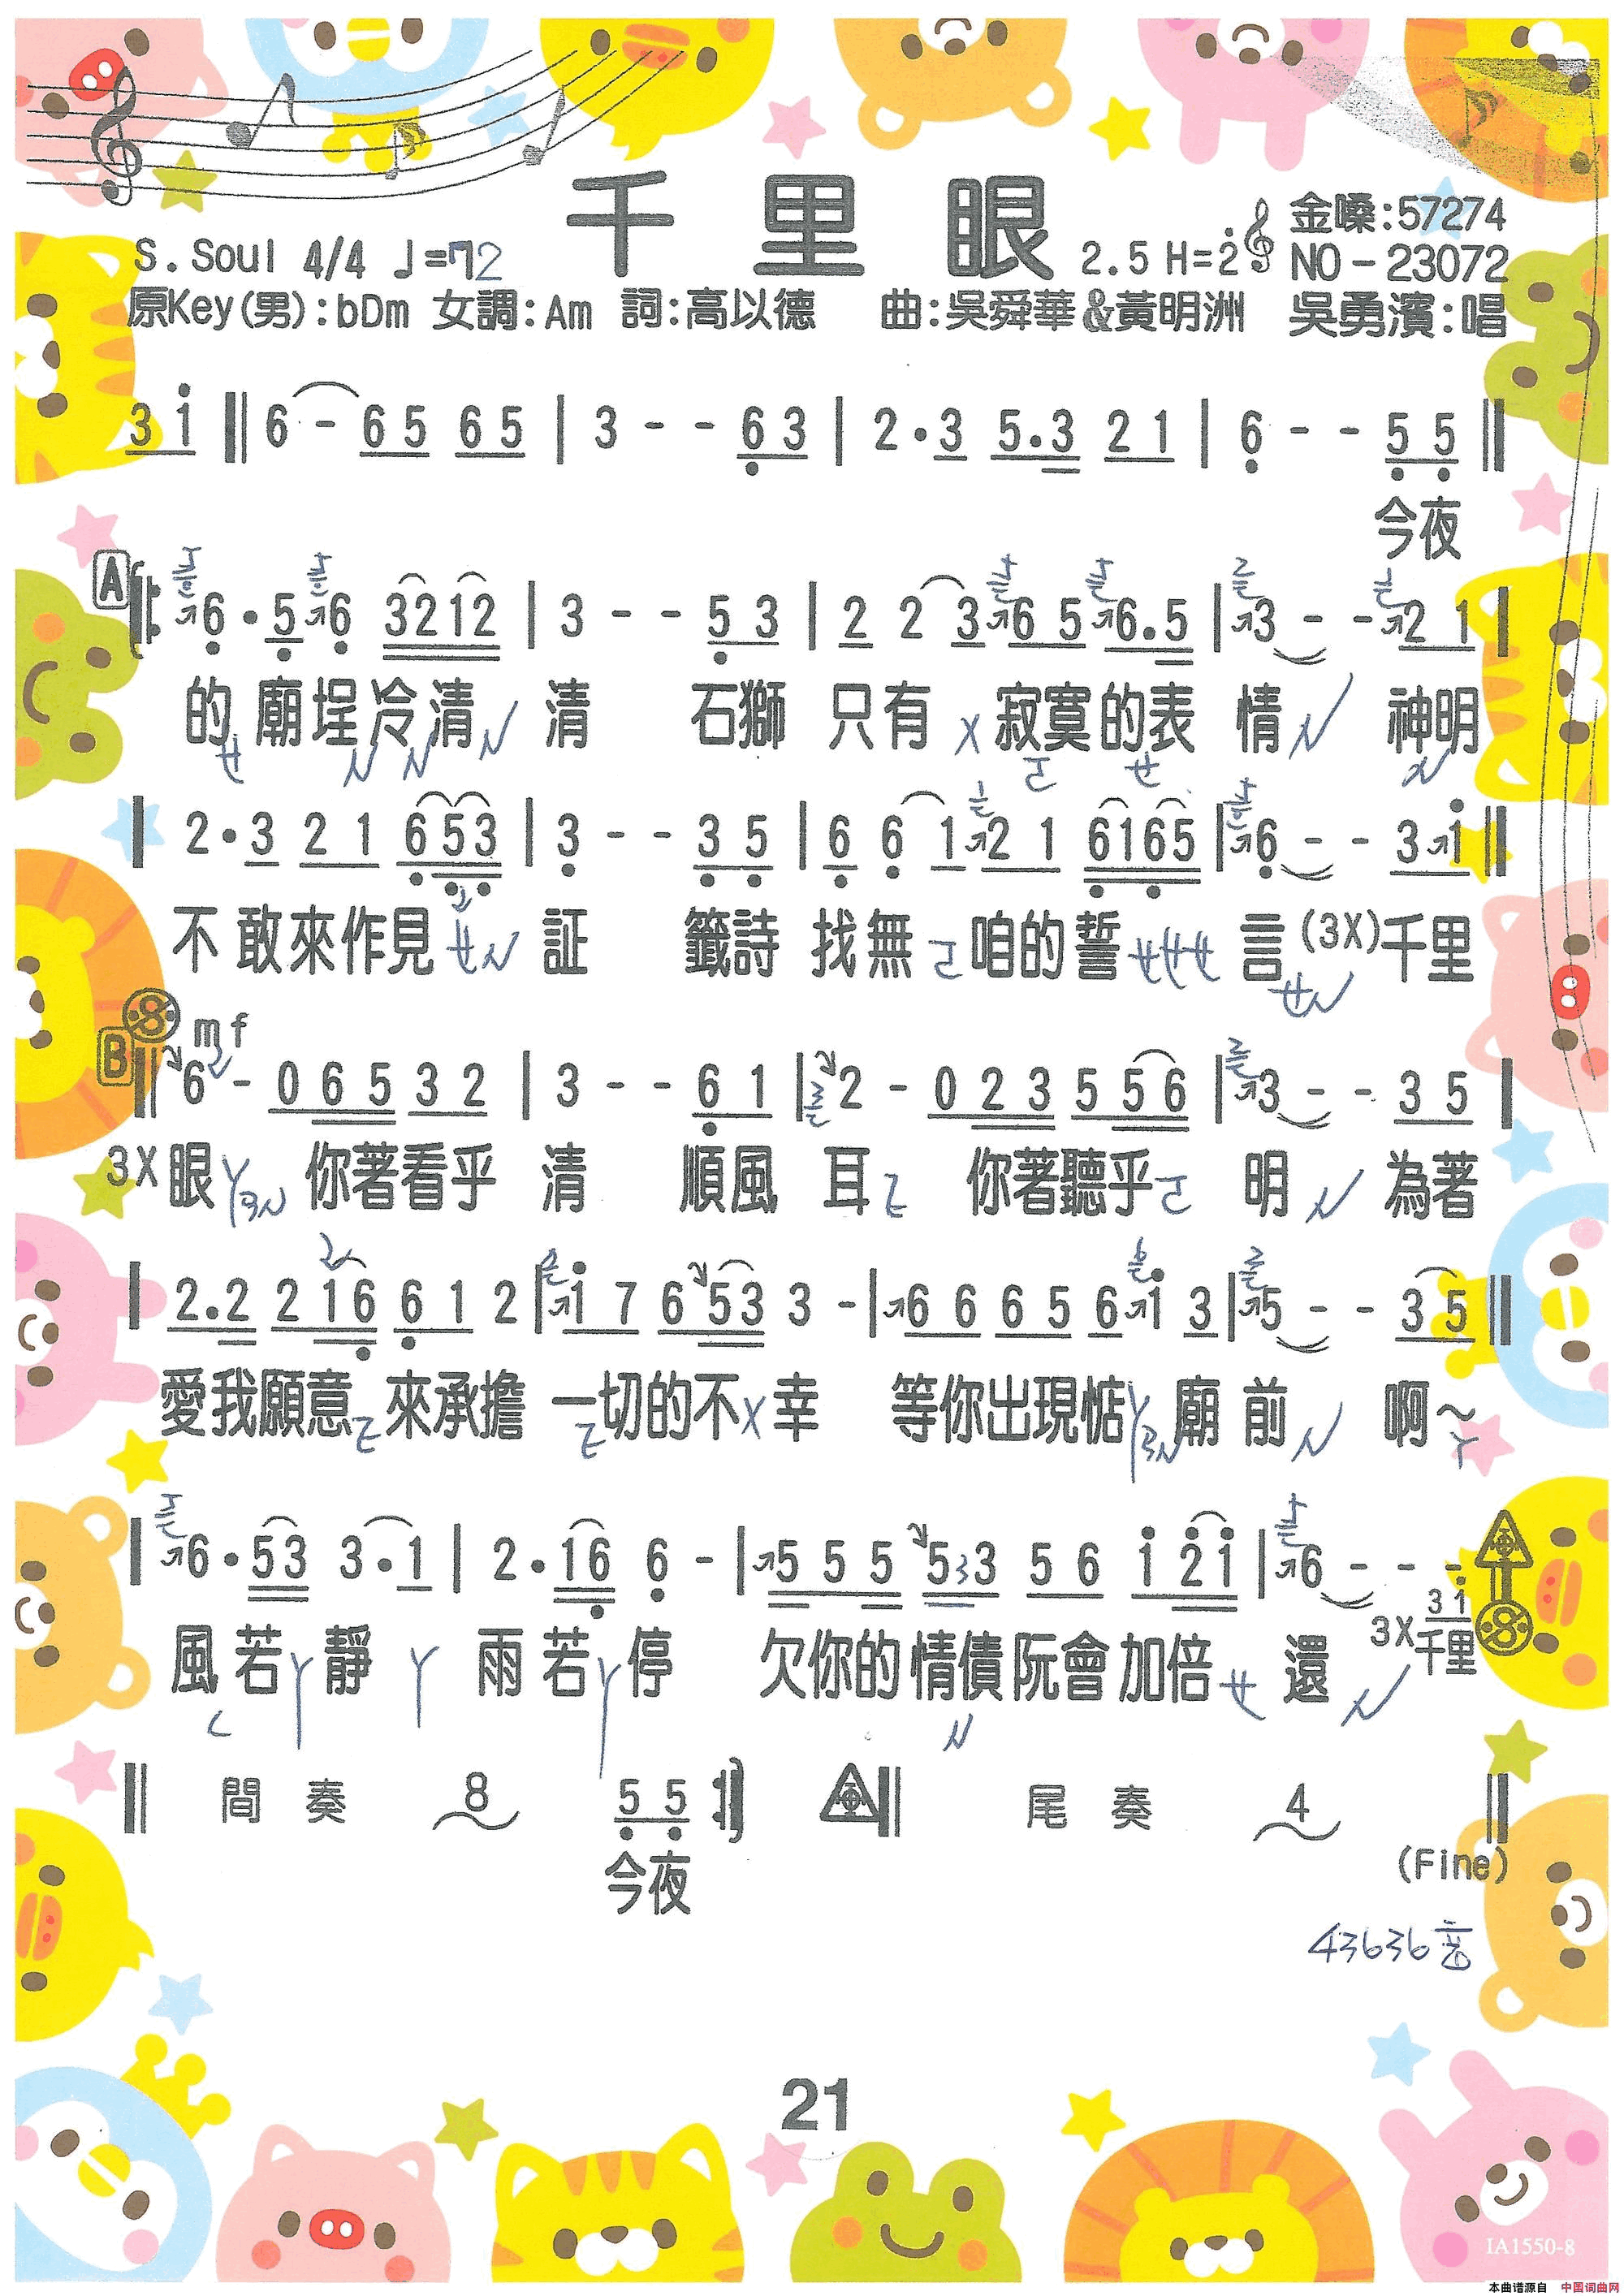 千里眼
金嗓:57274
S.Soul 4/4 ♩=72
2.5 H=2̇
NO-23072
原Key(男):bDm 女調:Am 詞:高以德 曲:吳舜華&黃明洲 吳勇濱:唱
3 i ‖ 6 - 6 5 6 5 | 3 - - 6 3 | 2 · 3 5 . 3 2 1 | 6 - - 5 5 ‖
今夜
A
6 · 5 6 3 2 1 2 | 3 - - 5 3 | 2 2 3 6 5 6 . 5 | 3 - - 2 1 |
的廟埕冷清 清 石獅 只有 寂寞的表 情 神明
| 2 · 3 2 1 6 5 3 | 3 - - 3 5 | 6 6 1 2 1 6 1 6 5 | 6 - - 3 i ‖
不敢來作見 証 籤詩 找無 咱的誓 言 (3X)千里
mf
B
‖ 6 - 0 6 5 3 2 | 3 - - 6 1 | 2 - 0 2 3 5 5 6 | 3 - - 3 5 |
3X眼 你著看乎 清 順風 耳 你著聽乎 明 為著
| 2 . 2 2 1 6 6 1 2 | i 7 6 5 3 3 - | 6 6 6 5 6 i 3 | 5 - - 3 5 ‖
愛我願意 來承擔 一切的不 幸 等你出現惦 廟前 啊~
| 6 · 5 3 3 · 1 | 2 · 1 6 6 - | 5 5 5 5 3 3 5 6 i 2̇ i | 6 - - -
3 i
風若 靜 雨若 停 欠你的情債阮會加倍 還 3X千里
‖ 間奏 8 5 5 :‖ ‖ 尾奏 4 ‖
今夜
(Fine)
43636音
21
IA1550-8
本曲谱源自 中国词曲网